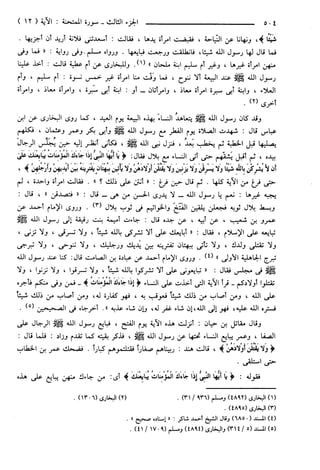 ٥٠٤ الجزء الثالث - سورة الممتحنة: الآية (١٢)
شيئاً﴾، ونهانا عن النياحة، فقبضت امرأة يدها، فقالت: أسعدتني فلانة أريد أن أجزيها.
فما قال لها رسول الله شيئاً، فانطلقت ورجعت فبايعها. ورواه مسلم. وفي رواية: «فما وفى
منهن امرأة غيرها، وغير أم سليم ابنة ملحان» (١). وللبخاري عن أم عطية قالت: أخذ علينا
رسول الله ﷺ عند البيعة ألا ننوح، فما وفت منا امرأة غير خمس نسوة: أم سليم، وأم
العلاء، وابنة أبي سبرة امرأة معاذ، وامرأتان - أو: ابنة أبي سبرة، وامرأة معاذ، وامرأة
أخرى (٢).
وقد كان رسول الله ﷺ يتعاهد النساء بهذه البيعة يوم العيد، كما روى البخاري عن ابن
عباس قال: شهدت الصلاة يوم الفطر مع رسول الله ﷺ وأبي بكر وعمر وعثمان، فكلهم
يصليها قبل الخطبة ثم يخطب بعد، فنزل نبي الله ﷺ فكأني أنظر إليه حين يجلس الرجال
بيده، ثم أقبل يشقهم حتى أتى النساء مع بلال فقال: ﴿يا أيها النبي إذا جاءك المؤمنات يبايعنك على
أن لا يشركن بالله شيئا ولا يسرقن ولا يزنين ولا يقتلن أولادهن ولا يأتين ببهتان يفترينه بين أيديهن وأرجلهن﴾،
حتى فرغ من الآية كلها. ثم قال حين فرغ: «أنتن على ذلك؟». فقالت امرأة واحدة، لم
يجبه غيرها: نعم يا رسول الله - لا يدري الحسن من هي - قال: «فتصدقن»، قال:
وبسط بلال ثوبه فجعلن يلقين الفتخ والخواتيم في ثوب بلال (٣). وروى الإمام أحمد عن
عمرو بن شعيب، عن أبيه، عن جده قال: جاءت أميمة بنت رقيقة إلى رسول الله ﷺ
تبايعه على الإسلام، فقال: «أبايعك على ألا تشركي بالله شيئاً، ولا تسرقي، ولا تزني،
ولا تقتلي ولدك، ولا تأتي ببهتان تفترينه بين يديك ورجليك، ولا تنوحي، ولا تبرجي
تبرج الجاهلية الأولى» (٤). وروى الإمام أحمد عن عبادة بن الصامت قال: كنا عند رسول الله
ﷺ في مجلس فقال: «تبايعوني على ألا تشركوا بالله شيئاً، ولا تسرقوا، ولا تزنوا، ولا
تقتلوا أولادكم - قرأ الآية التي أخذت على النساء ﴿إذا جاءك المؤمنات﴾ - فمن وفى منكم فأجره
على الله، ومن أصاب من ذلك شيئاً فعوقب به، فهو كفارة له، ومن أصاب من ذلك شيئاً
فستره الله عليه، فهو إلى الله، إن شاء غفر له، وإن شاء عذبه». أخرجاه في الصحيحين (٥).
وقال مقاتل بن حيان: أنزلت هذه الآية يوم الفتح، فبايع رسول الله ﷺ الرجال على
الصفا، وعمر يبايع النساء تحتها عن رسول الله ﷺ، فذكر بقيته كما تقدم وزاد: فلما قال:
﴿ولا يقتلن أولادهن﴾، قالت هند: ربيناهم صغاراً فقتلتموهم كباراً. فضحك عمر بن الخطاب
حتى استلقى.
فقوله: ﴿يا أيها النبي إذا جاءك المؤمنات يبايعنك﴾ أي: من جاءك منهن يبايع على هذه
(١) البخاري (٤٨٩٢) ومسلم (٩٣٦ / ٣١). (٢) البخاري (١٣٠٦).
(٣) البخاري (٤٨٩٥).
(٤) المسند (٦٨٥٠) وقال الشيخ أحمد شاكر: «إسناده صحيح».
(٥) المسند (٥ / ٣١٤) والبخاري (٤٨٩٤) ومسلم (١٧٠٩ / ٤١).